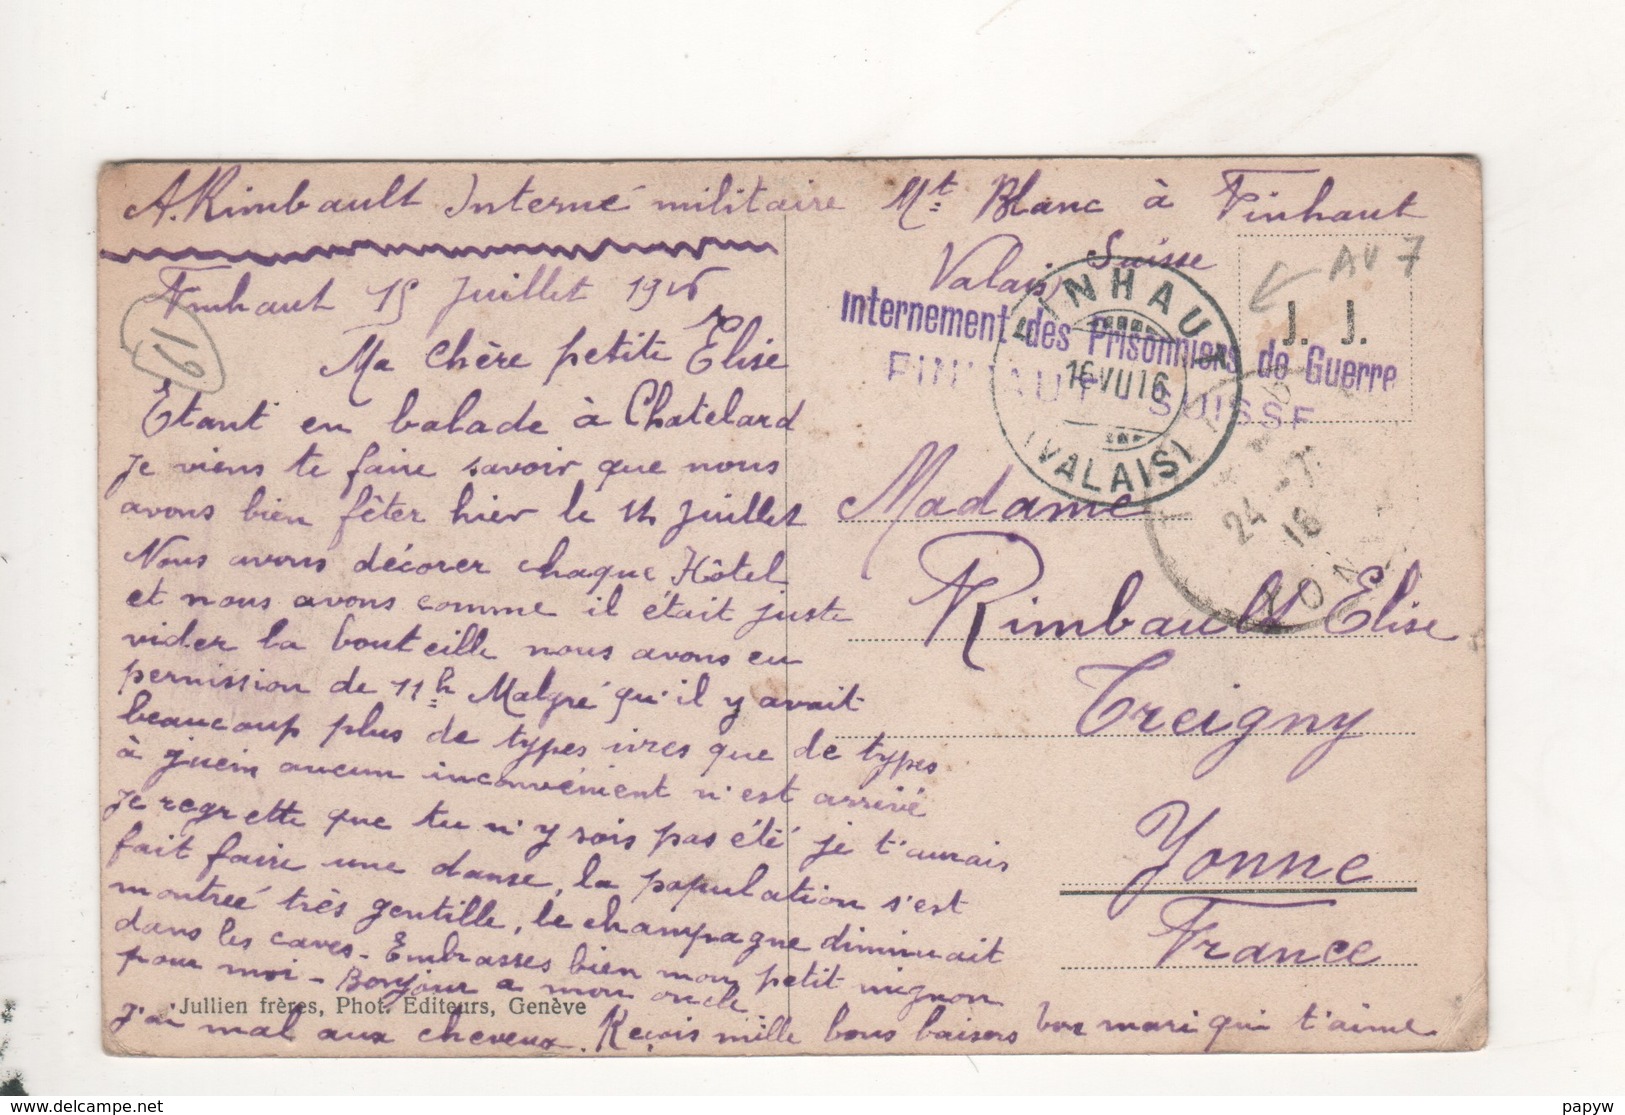 A. Rimbault Interné militaire Mt Blanc à Finhaut
Valais Suisse
Finhaut 15 Juillet 1916
Ma chère petite Elise
Etant en balade à Chatelard
je viens te faire savoir que nous
avons bien fêter hier le 14 Juillet
Nous avons décorer chaque Hôtel
et nous avons comme il était juste
vider la bouteille nous avons eu
permission de 11h Malgré qu'il y avait
beaucoup plus de types ivres que de types
à juein aucun inconvénient n'est arrivé
Je regrette que tu n'y sois pas été je t'aurais
fait faire une danse, la population s'est
montreé très gentille, le champagne diminuait
dans les caves - Embrasses bien mon petit mignon
pour moi - Bonjour a mon oncle
J'ai mal aux cheveux. Reçois mille bons baisers
ton mari qui t'aime
Jullien frères, Phot. Editeurs, Genève
16
AV 7
J. J.
Internement des Prisonniers de Guerre
FINHAUT SUISSE
FINHAUT
16 VII 16
(VALAIS)
24 -7
16
YONNE
Madame
Rimbault Elise
Treigny
Yonne
France
papyw